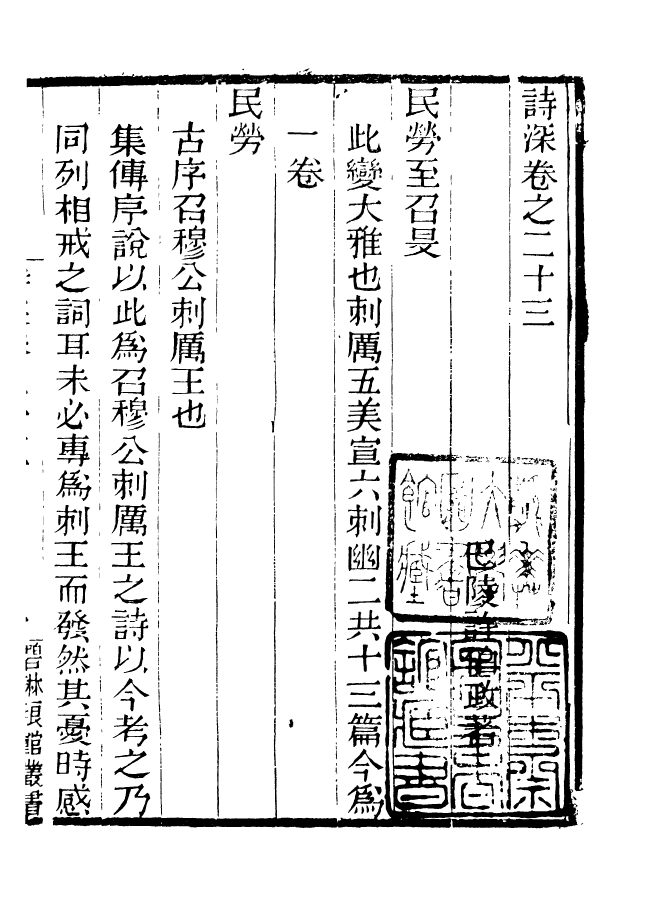 詩深卷之二十三
巴陵許 政著
民勞至召旻
此變大雅也刺厲五美宣六刺幽二共十三篇今爲
一卷
民勞
古序召穆公刺厲王也
集傳序說以此爲召穆公刺厲王之詩以今考之乃
同列相戒之詞耳未必專爲刺王而發然其憂時感
碧琳琅館叢書